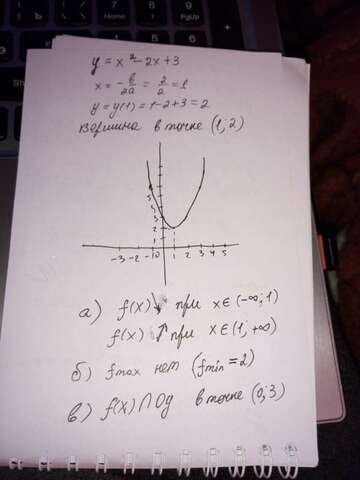 y = x² - 2x + 3
x = -b/2a = 2/2 = 1
y = y(1) = 1 - 2 + 3 = 2
Вершина в точке (1; 2)
5
4
3
2
1
-3 -2 -1 0 1 2 3 4 5
а) f(x) ↓ при x ∈ (-∞; 1)
f(x) ↑ при x ∈ (1; +∞)
б) fmax нет (fmin = 2)
в) f(x) ∩ Oy в точке (0; 3)